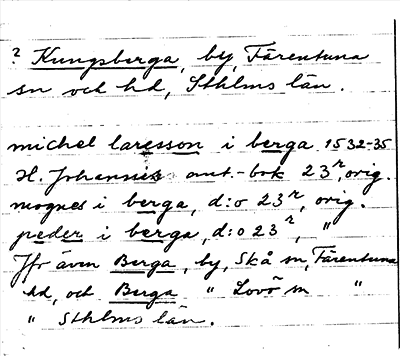 ? Kungsberga, by, Färentuna
sn och hd, Sthlms län.
michel laresson i berga 1532-35
H. Johannis ant.-bok 23r, orig.
mognes i berga, d:o 23r, orig.
peder i berga, d:o 23r, "
Jfr även Berga, by, Skå sn, Färentuna
hd, och Berga " Lovö sn "
" Sthlms län.